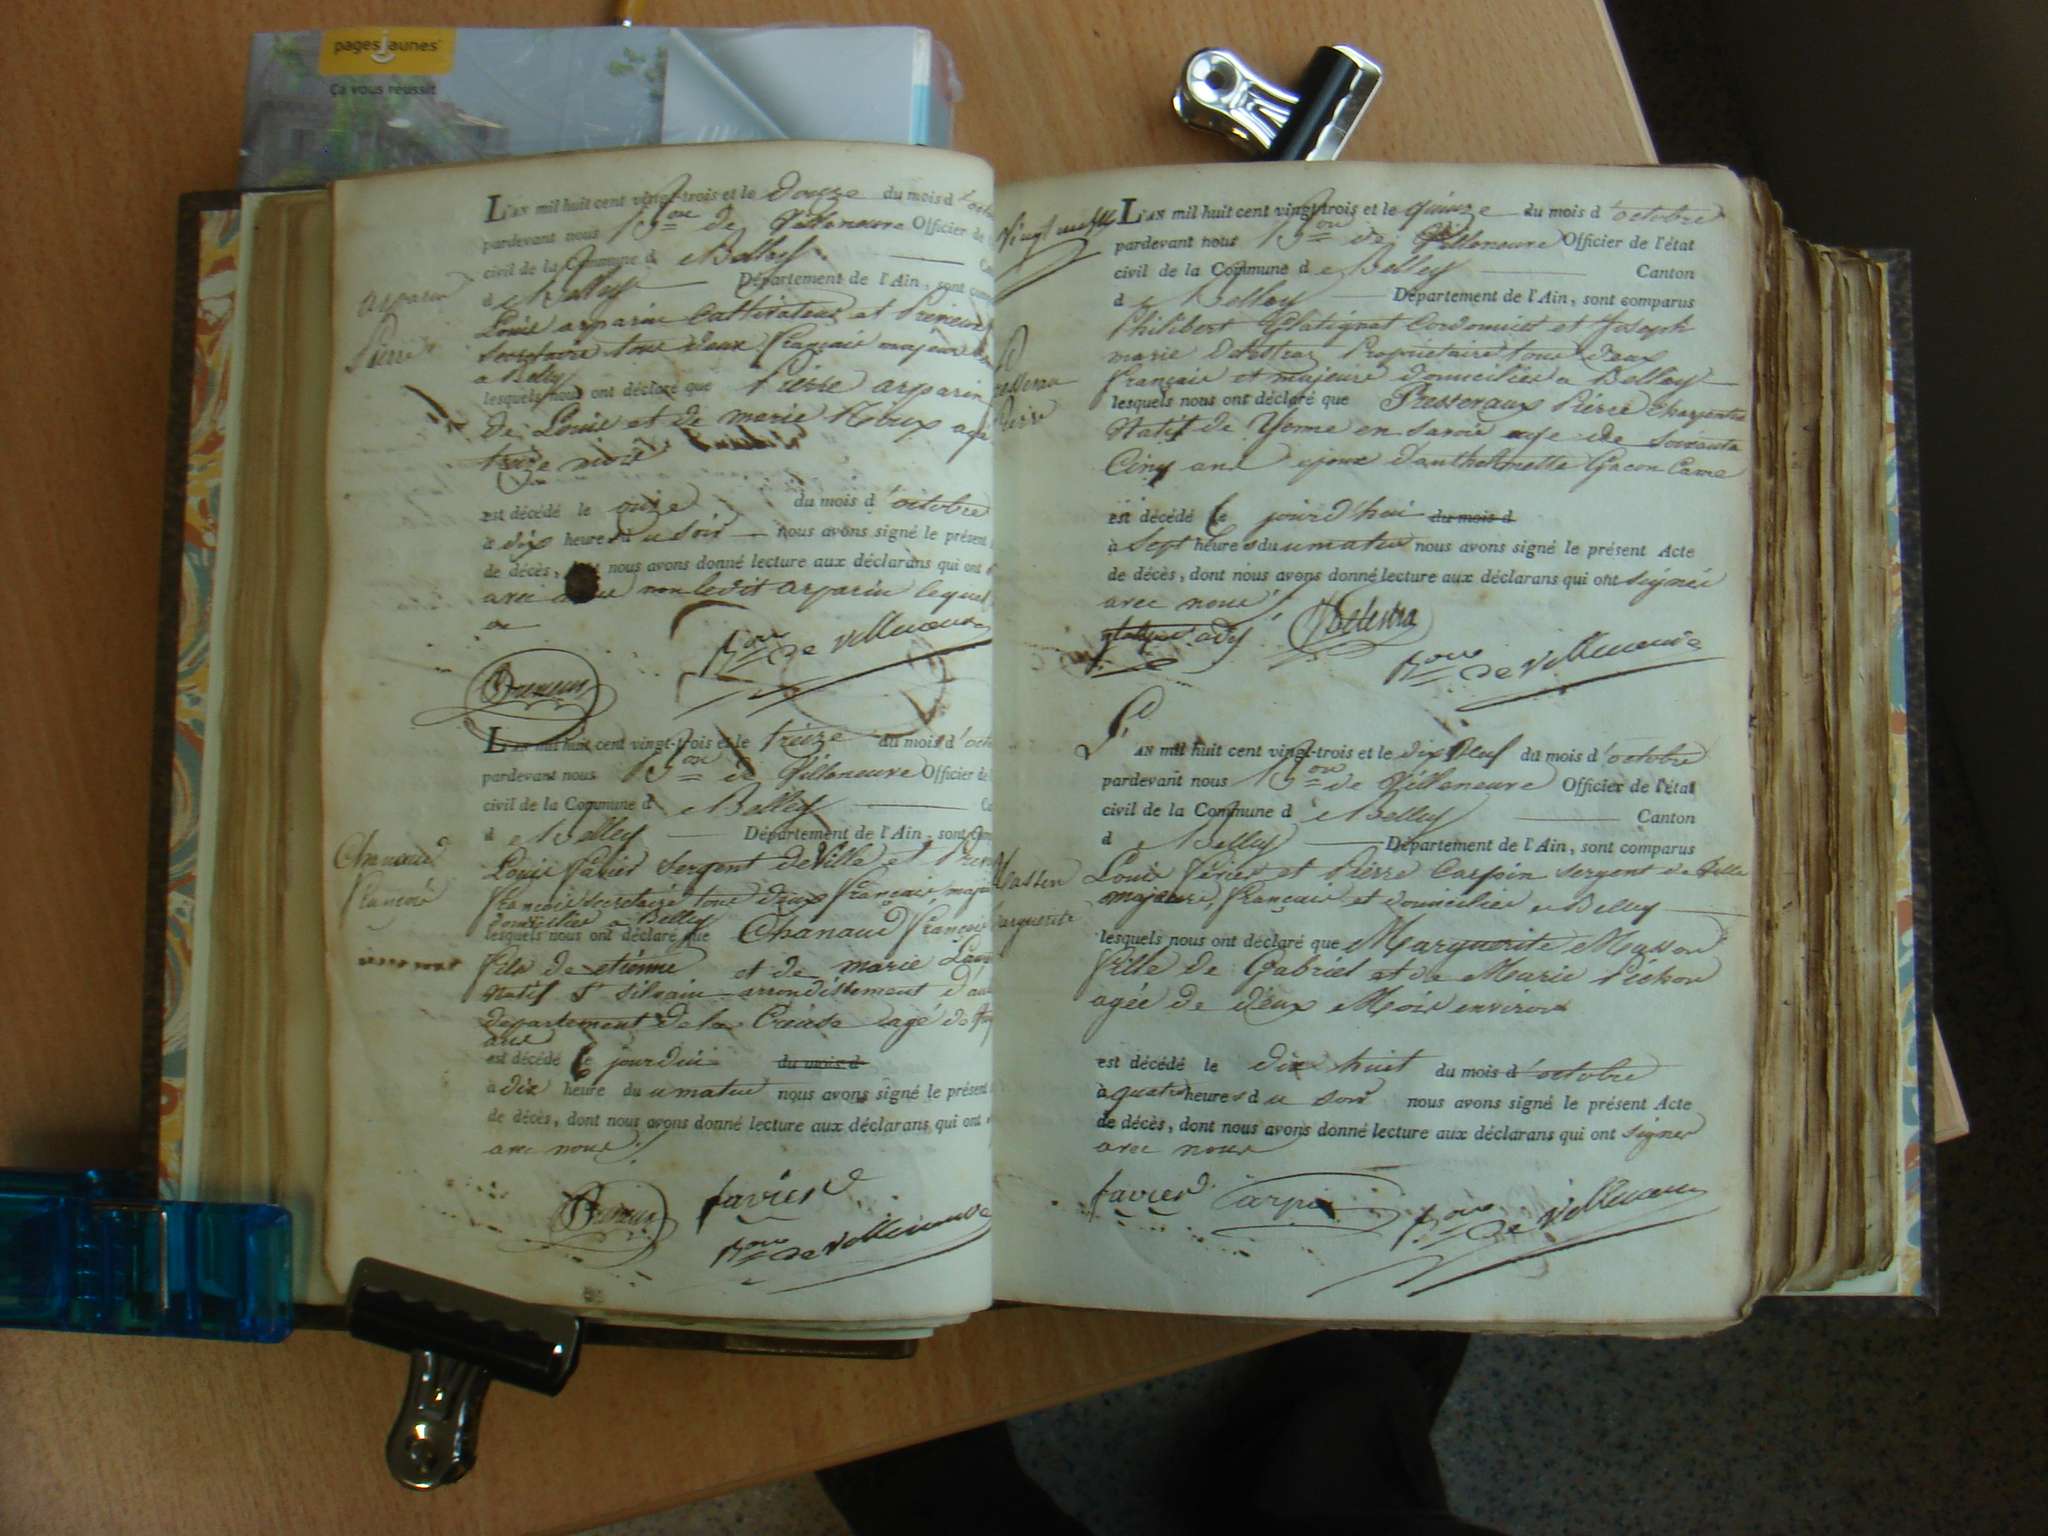 pagesjaunes
Ça vous réussit
L'AN mil huit cent vingt-trois et le Douze du mois d'octo
pardevant nous Bon de Villeneuve Officier de
civil de la Commune de Belley
de Belley Département de l'Ain, sont comp
Louis arparin Cultivateur et Preneur
Secrétaire tous deux français majeur
a Belley
lesquels nous ont déclaré que Pierre arparin
de Louis et de marie Roux agé
treize mois
est décédé le onze du mois d'octobre
à dix heures du soir nous avons signé le présent
de décès, dont nous avons donné lecture aux déclarans qui ont
avec nous non ledit arparin lequel
Bon de Villeneuve
Preneur
arparin
Pierre
L'AN mil huit cent vingt-trois et le treize du mois d'octo
pardevant nous Bon de Villeneuve Officier de
civil de la Commune de Belley
de Belley Département de l'Ain, sont com
Louis favier Sergent de Ville et Pren
françois Secretaire tous deux français maje
domiciliés a Belley
lesquels nous ont déclaré que Chanaud françois
fils de etienne et de marie
Natif St Silvain arrondissement d'au
departement de la Creuse agé de
ans
est décédé le jourdui du mois d
à dix heure du matin nous avons signé le présent
de décès, dont nous avons donné lecture aux déclarans qui ont
avec nous
Preneur favier
Bon de Villeneuve
Chanaud
françois
Vingt neuf
L'AN mil huit cent vingt-trois et le quinze du mois d'octobre
pardevant nous Bon de Villeneuve Officier de l'état
civil de la Commune de Belley Canton
de Belley Département de l'Ain, sont comparus
Philibert Glatignat Cordonnier et Joseph
marie Delestraz Propriétaire tous deux
français et majeurs domiciliés a Belley
lesquels nous ont déclaré que Presseraux Pierre charpentier
Natif de Yenne en savoie age de soixante
Cinq ans epoux d'anthelmette Gacon Came
est décédé le jourd'hui du mois d
à Sept heures du matin nous avons signé le présent Acte
de décès, dont nous avons donné lecture aux déclarans qui ont signés
avec nous
Delestra
Bon de Villeneuve
Pierre
L'AN mil huit cent vingt-trois et le dix Neuf du mois d'octobre
pardevant nous Bon de Villeneuve Officier de l'état
civil de la Commune de Belley Canton
de Belley Département de l'Ain, sont comparus
Louis Favier et Pierre Carpin sergent de Ville
majeurs, français et domiciliés a Belley
lesquels nous ont déclaré que Marguerite Masson
fille de Gabriel et de Marie Pichon
agée de deux Mois environ
est décédé le dix huit du mois d'octobre
à quatre heures du soir nous avons signé le présent Acte
de décès, dont nous avons donné lecture aux déclarans qui ont signer
avec nous
favier Carpin Bon de Villeneuve
Masson
Marguerite